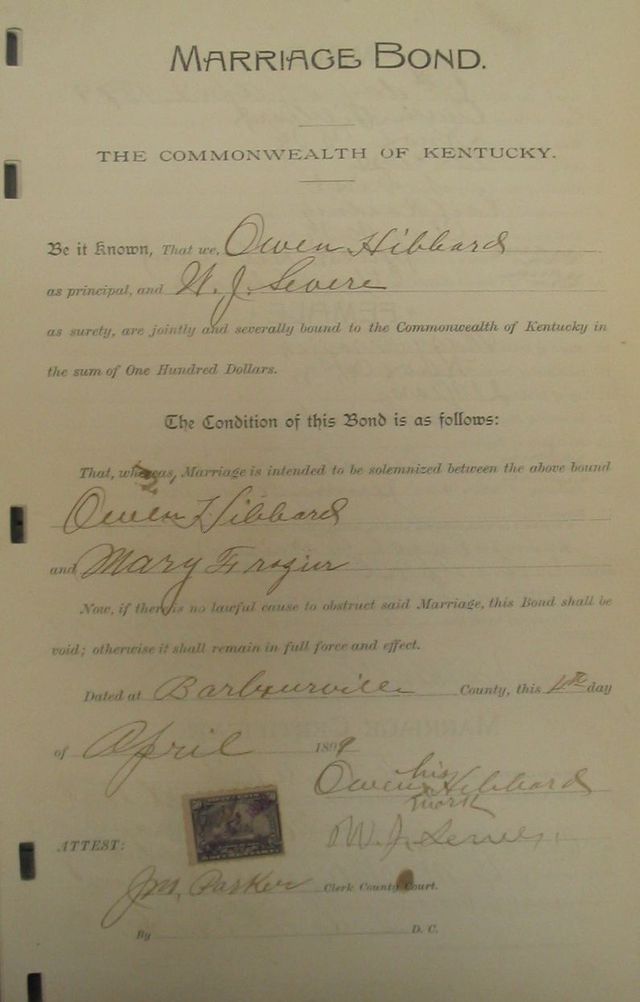 MARRIAGE BOND.
THE COMMONWEALTH OF KENTUCKY.
Be it known, That we, Owen Hibbard
as principal, and W. J. Severe
as surety, are jointly and severally bound to the Commonwealth of Kentucky in
the sum of One Hundred Dollars.
The Condition of this Bond is as follows:
That, whereas, Marriage is intended to be solemnized between the above bound
Owen Hibbard
and Mary Frazier
Now, if there is no lawful cause to obstruct said Marriage, this Bond shall be
void; otherwise it shall remain in full force and effect.
Dated at Barbourville County, this 4th day
of April 1899
his
Owen Hibbard
mark
ATTEST: W. J. Severe
J M, Parker Clerk County Court.
By D. C.